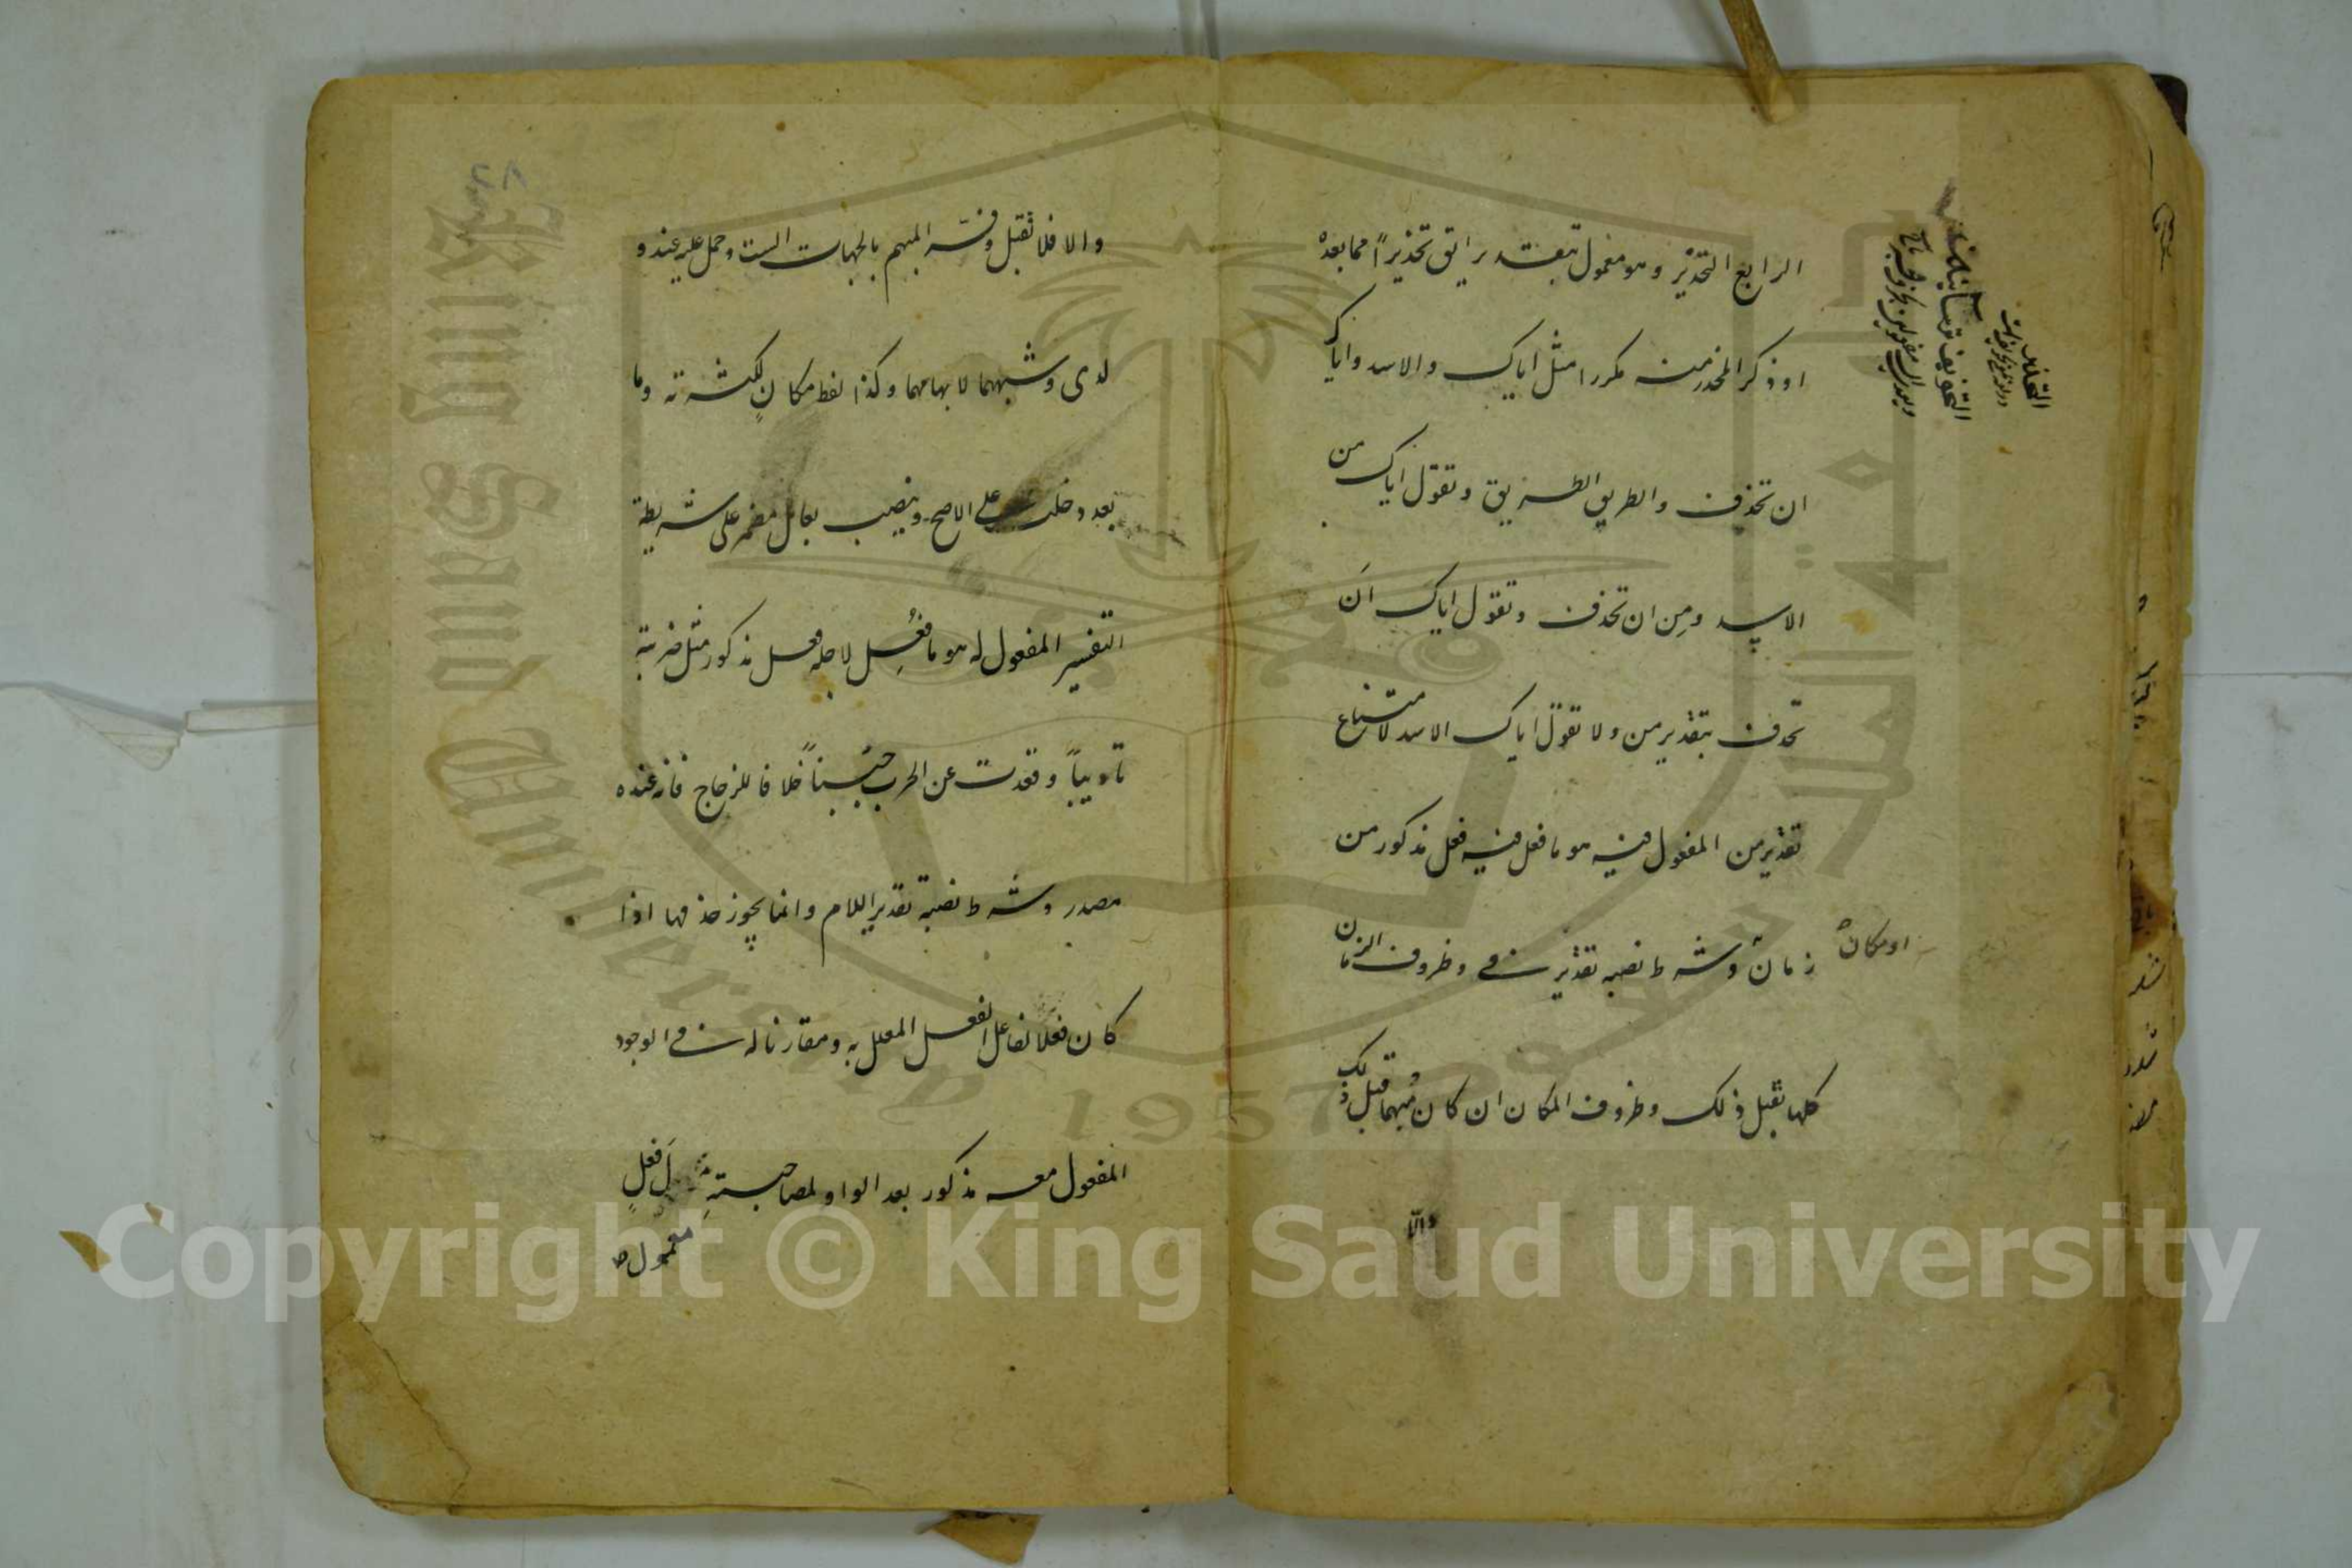 الرابع التحذير وهو معمول بتقدير اتق تحذيراً مما بعده
او ذكر المحذر منه مكررا مثل اياك والاسد واياك
ان تحذف والطريق الطريق وتقول اياك من
الاسد ومن ان تحذف وتقول اياك ان
تحذف بتقدير من ولا تقول اياك الاسد لامتناع
تقدير من المفعول فيه هو ما فعل فيه فعل مذكور من
زمان او مكان وشرط نصبه تقدير في وظروف الزمان
كلها تقبل ذلك وظروف المكان ان كان مبهما قبل ذلك
والا
التحذير
والا فلا تقبل وفسر المبهم بالجهات الست وحمل عليه عند و
لدى وشبههما لابهامهما وكذا لفظ مكان لكثرته وما
بعد دخلت على الاصح وينصب بعامل مضمر على شريطة
التفسير المفعول له هو ما فعل لاجله فعل مذكور مثل ضربته
تاديباً وقعدت عن الحرب جبناً خلافا للزجاج فانه عنده
مصدر وشرط نصبه تقدير اللام وانما يجوز حذفها اذا
كان فعلا لفاعل الفعل المعلل به ومقارنا له في الوجود
المفعول معه مذكور بعد الواو لمصاحبة
معمول فعل
٢٨
King Saud University
1957
Copyright © King Saud University